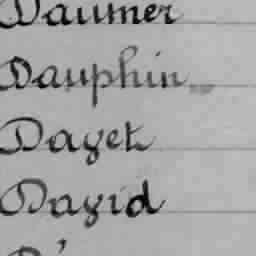 Daumer
Dauphin
Dayet
Dayid
D'